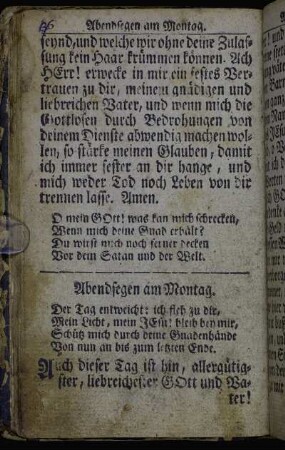 136 Abendsegen am Montag.
seynd, und welche wir ohne deine Zulas-
sung kein Haar krümmen können. Ach
HErr! erwecke in mir ein festes Ver-
trauen zu dir, meinem gnädigen und
liebreichen Vater, und wenn mich die
Gottlosen durch Bedrohungen von
deinem Dienste abwendig machen wol-
len, so stärke meinen Glauben, damit
ich immer fester an dir hange, und
mich weder Tod noch Leben von dir
trennen lasse. Amen.
O mein GOtt! was kan mich schrecken,
Wenn mich deine Gnad erhält?
Du wirst mich noch ferner decken
Vor dem Satan und der Welt.
Abendsegen am Montag.
Der Tag entweicht: ich flieh zu dir,
Mein Licht, mein JEsu! bleib bey mir,
Schütz mich durch deine Gnadenhände
Von nun an bis zum letzten Ende.
Auch dieser Tag ist hin, allergütig-
ster, liebreichester GOtt und Va-
ter!